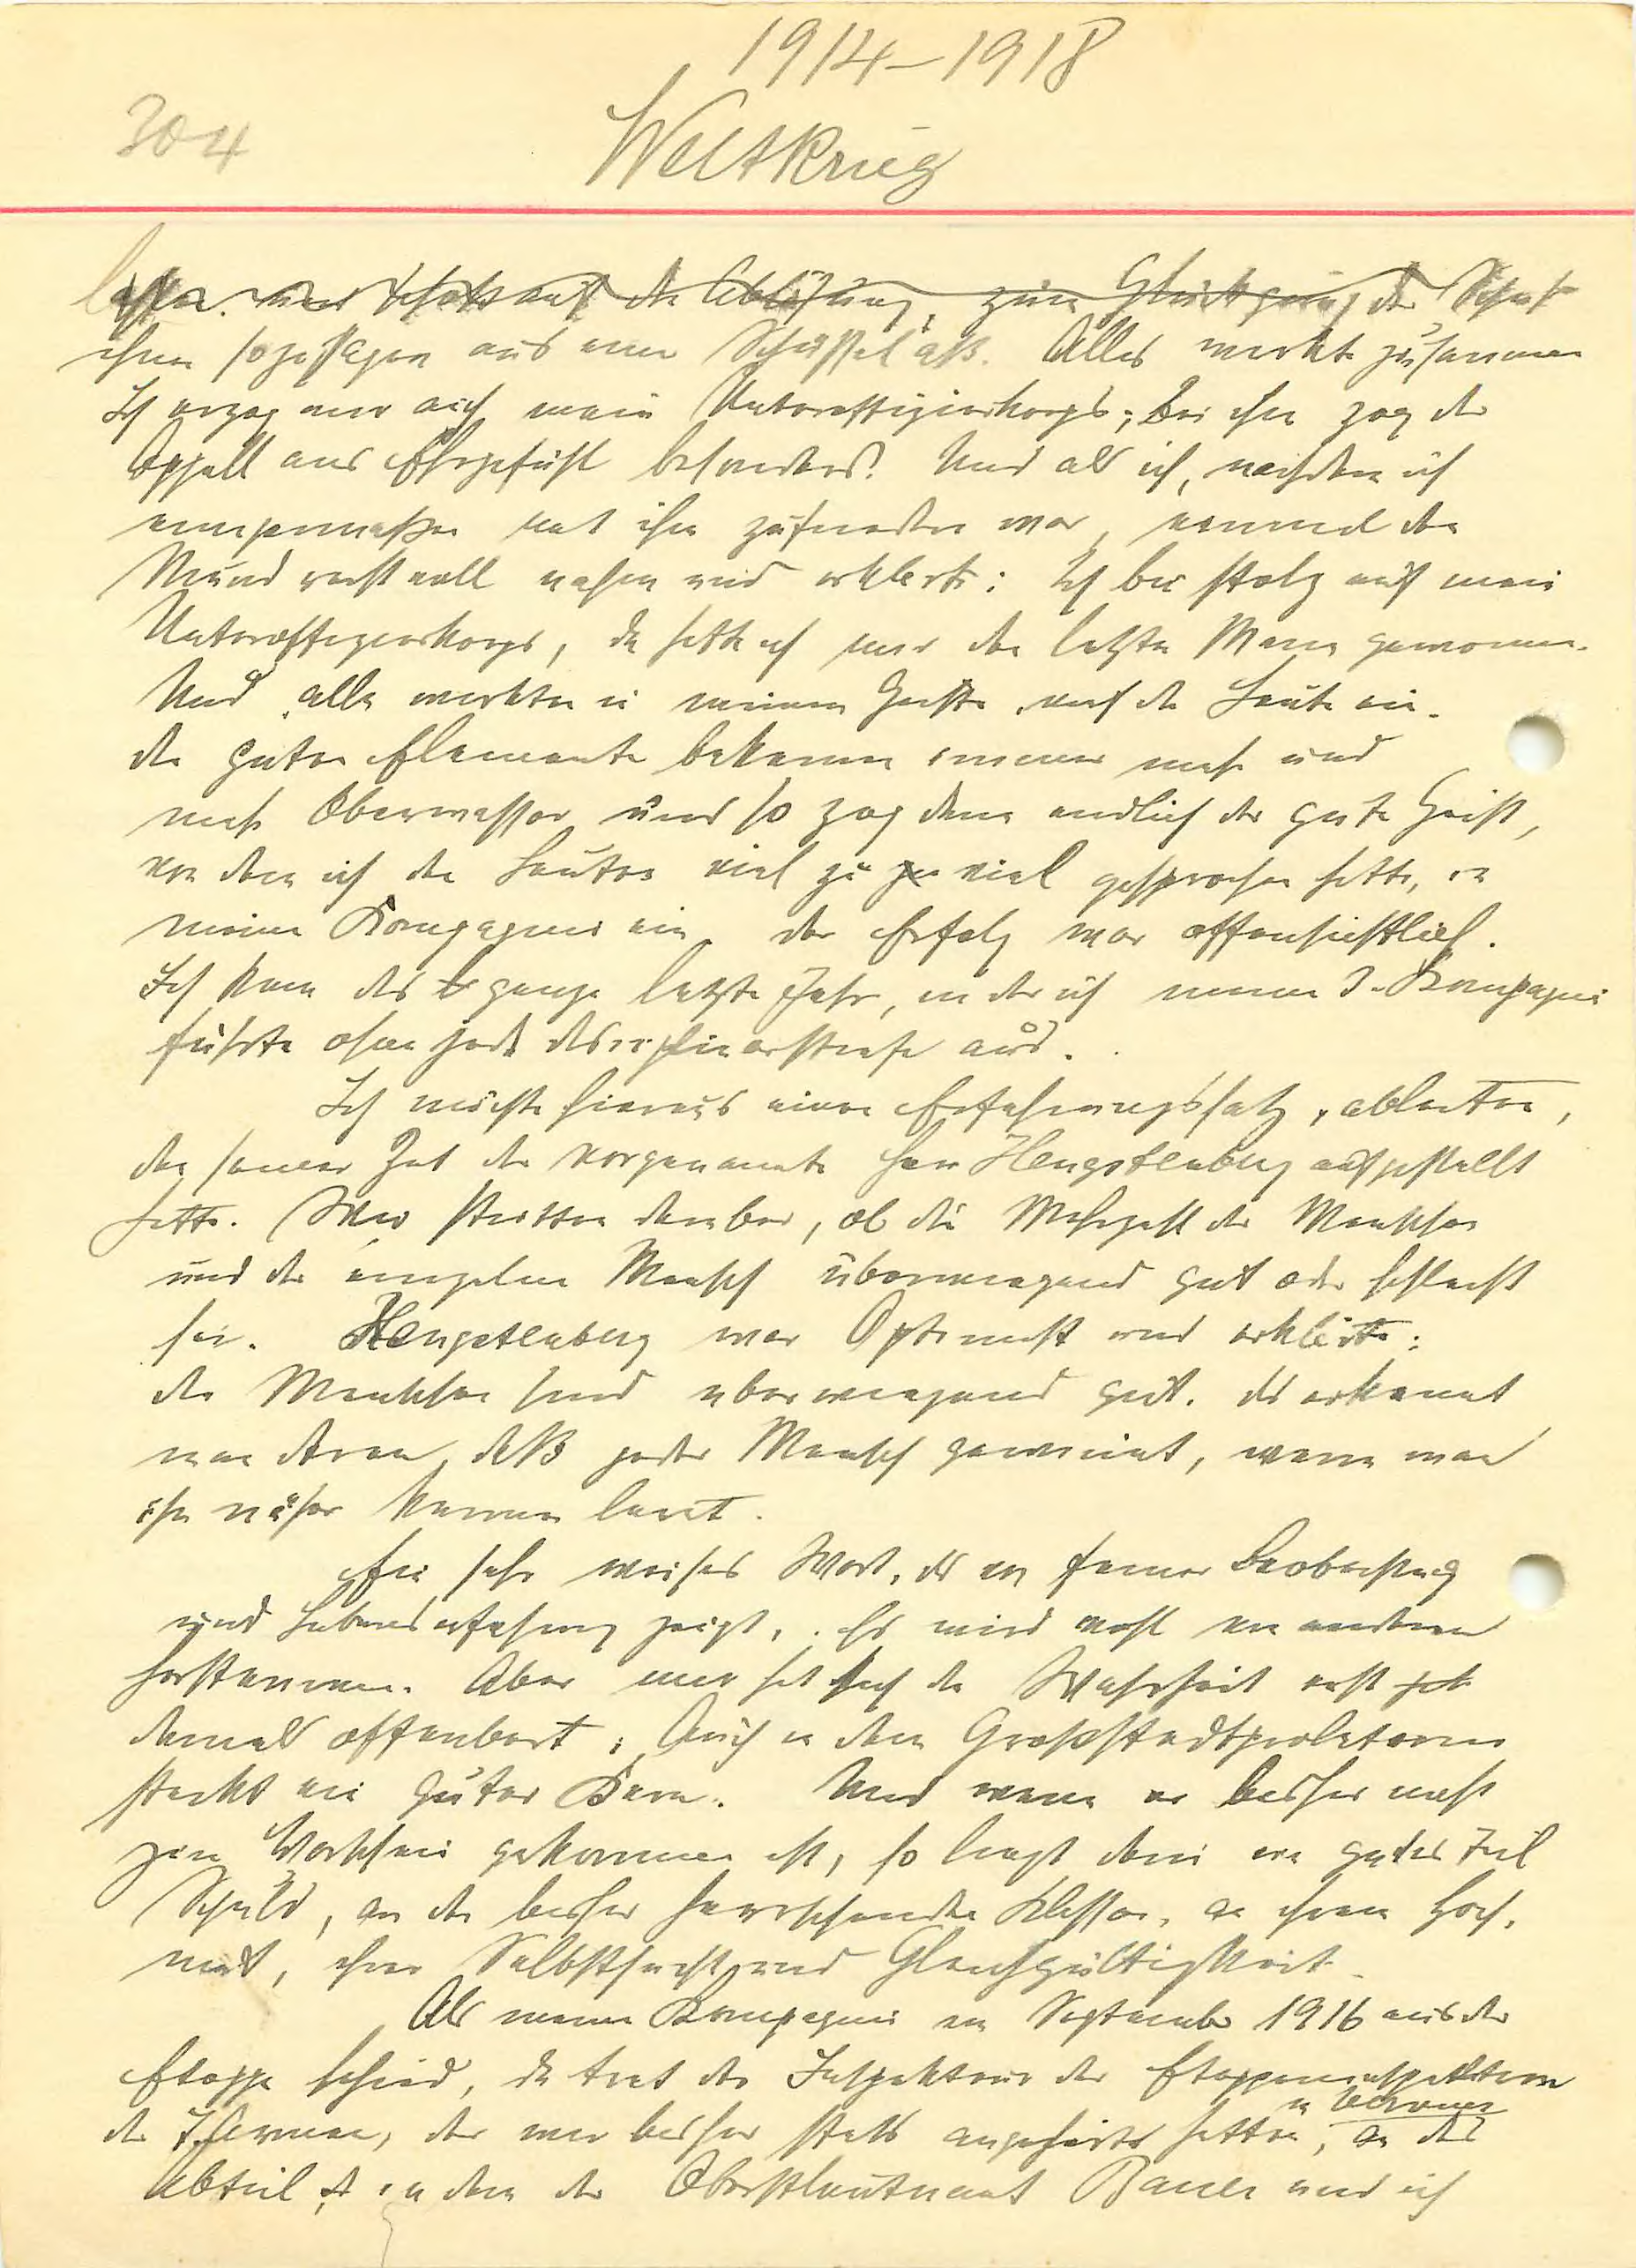 1914–1918
304
Weltkrieg
auf die Ablösung, zum Glück ging der
ihnen sozusagen aus einer Schüssel aß. Alles wirkte zusammen
Ich erzog mir auch mein Unteroffizierkorps; bei ihm zog der
Appell ans Ehrgefühl besonders. Und als ich, nachdem ich
einigermaßen mit ihm zufrieden war, einmal den
Mund recht voll nahm und erklärte: Ich bin stolz auf mein
Unteroffizierkorps, da hatte ich mir den letzten Mann gewonnen.
Und alle wirkten in meinem Geiste auf die Leute ein.
die guten Elemente bekamen immer mehr und
mehr Oberwasser und so zog denn endlich der gute Geist,
von dem ich den Leuten viel zu viel gesprochen hatte, in
meine Kompagnie ein. der Erfolg war offensichtlich.
Ich kam das ganze letzte Jahr, in der ich meine 3. Kompagnie
führte ohne jede disziplinarstrafe aus.
Ich möchte hieraus einen Erfahrungssatz ableiten,
den seiner Zeit der vorgenannte Herr Hengstenberg aufgestellt
hatte. Wir stritten darüber, ob die Mehrzahl der Menschen
und der einzelne Mensch überwiegend gut oder schlecht
sei. Hengstenberg war Optimist und erklärte:
die Menschen sind überwiegend gut. das erkennt
man daran, daß jeder Mensch gewinnt, wenn man
ihn näher kennen lernt.
Ein sehr weises Wort, das von feiner Beobachtung
und Lebenserfahrung zeigt. Es wird wohl von anderen
herstammen. Aber mir hat sich die Wahrheit erst
damals offenbart: Auch in dem Großstadtproletarier
steckt ein guter Kern. Und wenn er bisher nicht
zum Vorschein gekommen ist, so liegt darin ein guter Teil
Schuld, an der bisher herrschenden Klasse, an ihrem Hoch-
mut, ihrer Selbstsucht und Gleichgültigkeit.
Als meine Kompagnie im September 1916 aus der
Etappe schied, da trat der Inspekteur der Etappeninspektion
der 7. Armee, der wir bisher stets angehört hatten, in an das
Abteil in dem der Oberstleutnant Bauer und ich